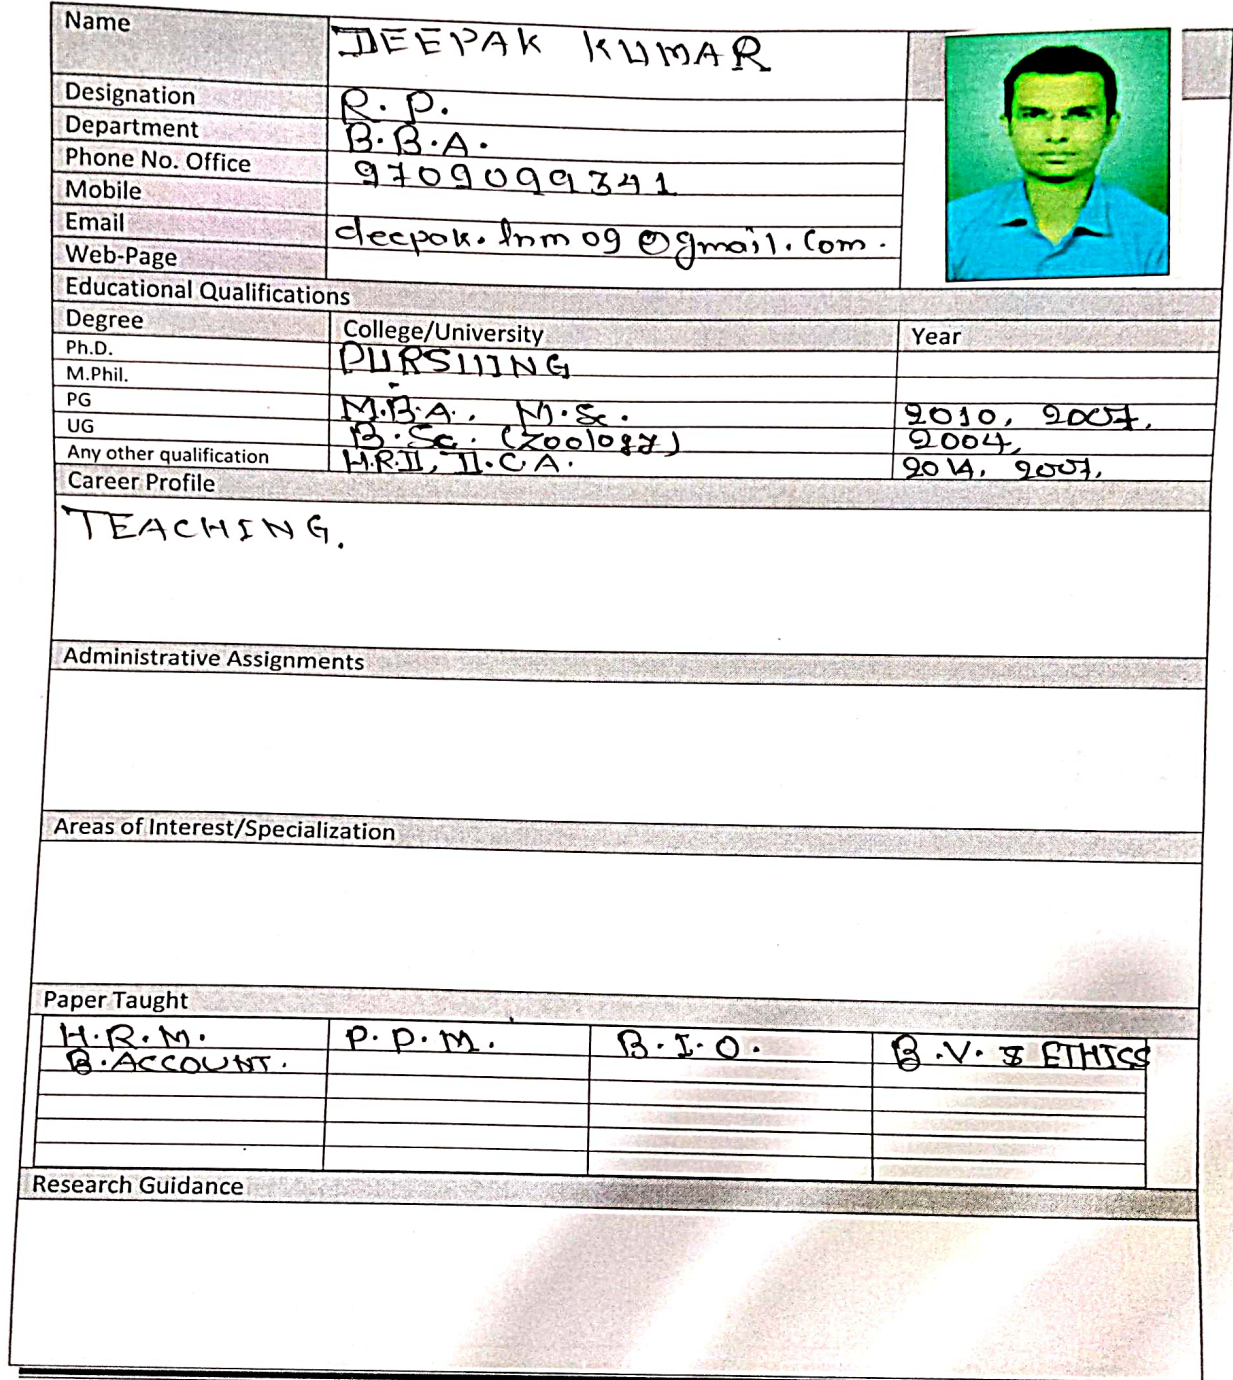 Name DEEPAK KUMAR
Designation R. P.
Department B.B.A.
Phone No. Office 9709099341
Mobile
Email deepak.lnm09@gmail.com.
Web-Page
Educational Qualifications
Degree College/University Year
Ph.D. PURSUING
M.Phil.
PG M.B.A., M.Sc. 2010, 2007,
UG B.Sc. (Zoology) 2004,
Any other qualification H.R.D, D.C.A. 2014, 2007,
Career Profile
TEACHING.
Administrative Assignments
Areas of Interest/Specialization
Paper Taught
H.R.M. P.P.M. B.I.O. B.V. & ETHICS
B.ACCOUNT.
Research Guidance